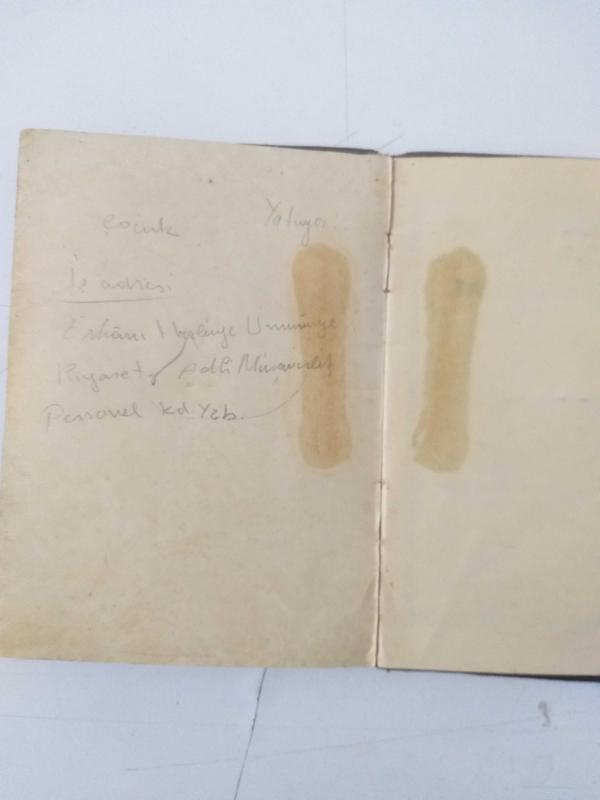 çocuk Yatıyor
İş adresi
Erkânı Harbiye Umumiye
Riyaseti Adli Müşavirlik
Personel kd Yzb.